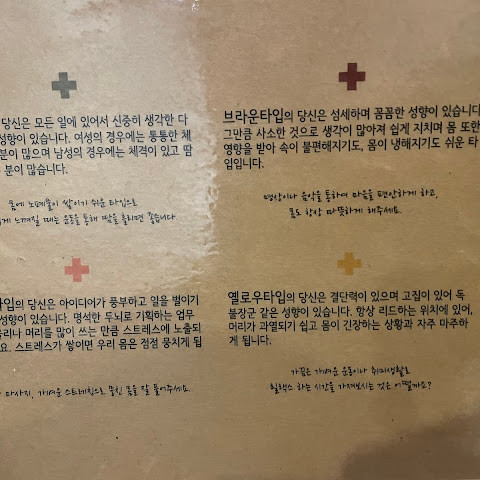 당신은 모든 일에 있어서 신중히 생각한 다
성향이 있습니다. 여성의 경우에는 통통한 체
분이 많으며 남성의 경우에는 체격이 있고 땀
분이 많습니다.
몸에 노폐물이 쌓이기 쉬운 타입으로
느껴질 때는 운동을 통해 땀을 흘리면 좋습니다
브라운타입의 당신은 섬세하며 꼼꼼한 성향이 있습니다
그만큼 사소한 것으로 생각이 많아져 쉽게 지치며 몸 또한
영향을 받아 속이 불편해지기도, 몸이 냉해지기도 쉬운 타
입입니다.
명상이나 음악을 통하여 마음을 편안하게 하고,
몸도 항상 따뜻하게 해주세요.
타입의 당신은 아이디어가 풍부하고 일을 벌이기
성향이 있습니다. 명석한 두뇌로 기획하는 업무
머리를 많이 쓰는 만큼 스트레스에 노출되
요. 스트레스가 쌓이면 우리 몸은 점점 뭉치게 됩
마사지, 가벼운 스트레칭으로 뭉친 몸을 잘 풀어주세요.
옐로우타입의 당신은 결단력이 있으며 고집이 있어 독
불장군 같은 성향이 있습니다. 항상 리드하는 위치에 있어,
머리가 과열되기 쉽고 몸이 긴장하는 상황과 자주 마주하
게 됩니다.
가끔은 가벼운 운동이나 취미생활로
릴랙스 하는 시간을 가져보시는 것은 어떨까요?